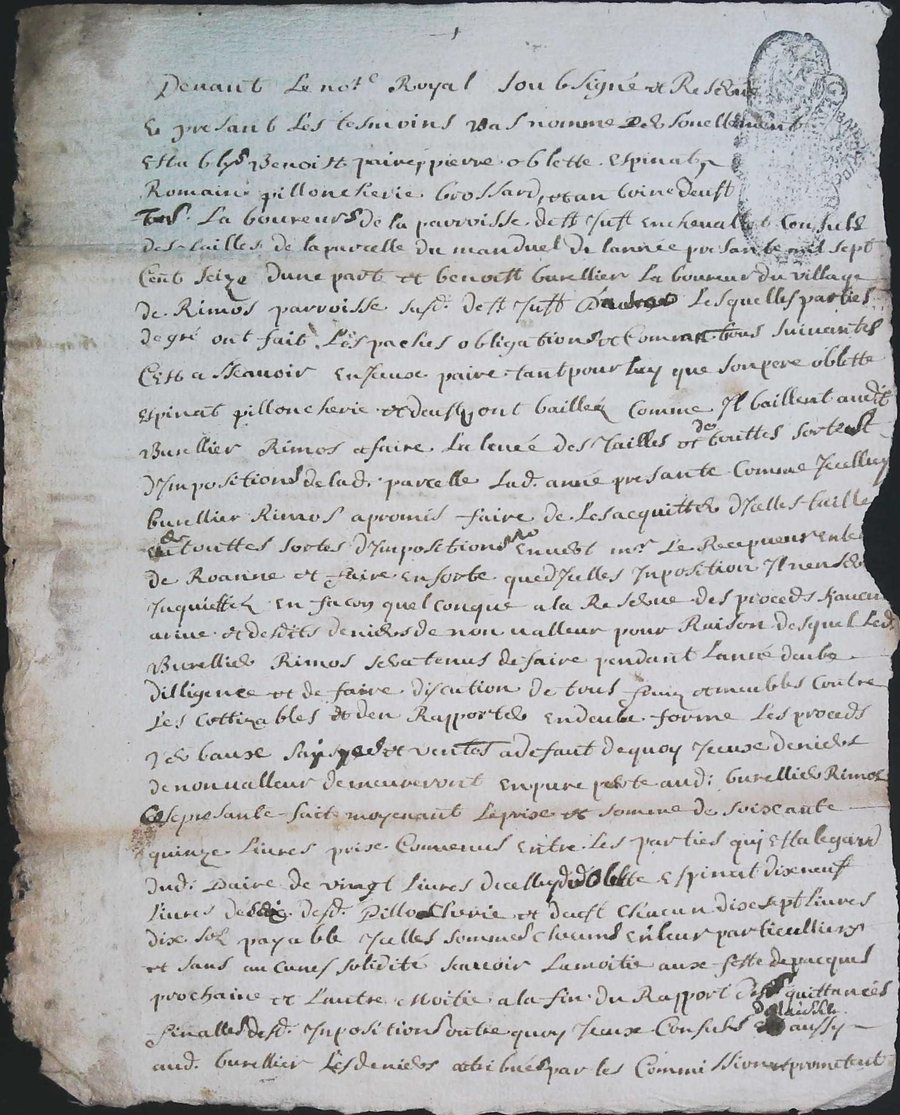 Devant Le not.e Royal soubsigné et Reservé
Et presant Les tesmoins bas nommé
Establys Benoist paire pierre oblette Espinat
Romain pilloncherie brossard, et antoine deust
La boureurs de la parroisse de st Just Enchevallet Consuls
des tailles de la parcelle du manduel de lannée presante mil sept
Cent Seize dune part et benoist burellier La boureur du village
de Rimos parroisse sus.d de st Just Lesquelles parties
de gré ont fait Les paches obligations et Conventions suivantes
Cest a Sçavoir Iceux paire tant pour luy que son pere oblette
Espinat pilloncherie et deust ont baillé Comme Il baillent audit
Burellier Rimos a faire La levée des tailles et de touttes sortes
d'Impositions de lad. parcelle Lad. année presante Comme Icelluy
burellier Rimos a promis faire de Les acquitter d'Icelles tailles
et de touttes sortes d'Impositions Envers mr. Le Recepveur
de Roanne et faire Ensorte que d'Icelles Inposition Il nen
Inquietté En façon quelconque a la Reserve des proceds
et desdits deniers de non valleur pour Raison desquel Led.
Burellier Rimos sera tenus de faire pendant Lanné deube
dilligence et de faire discution de tous fruis et meubles Contre
Les Cottizables et den Rapporter en deube forme Les proceds
baux saisyes et ventes a defaut dequoy Iceux deniers
de non valleur demeureront En pure perte aud. burellier Rimos
Cespresante faite moyenant Le prix et somme de soixante
quinze Livres prix Convenus Entre Les parties qui Est a legard
dud. Paire de vingt Livres Oblette Espinat dixneuf
Livres desd. Pilloncherie et deust Chacun dixsept Livres
dix sol payable Icelles sommes chacuns En leur particulliers
et sans aucunes solidité Scavoir La moitie aux fette de pacques
prochaine et L'autre Moitie a la fin du Rapport des quittances
finalles desd. Inpositions outre quoy Iceux Consuls delaisse aussy
aud. burellier Les deniers atribués par les Commissions et prometent